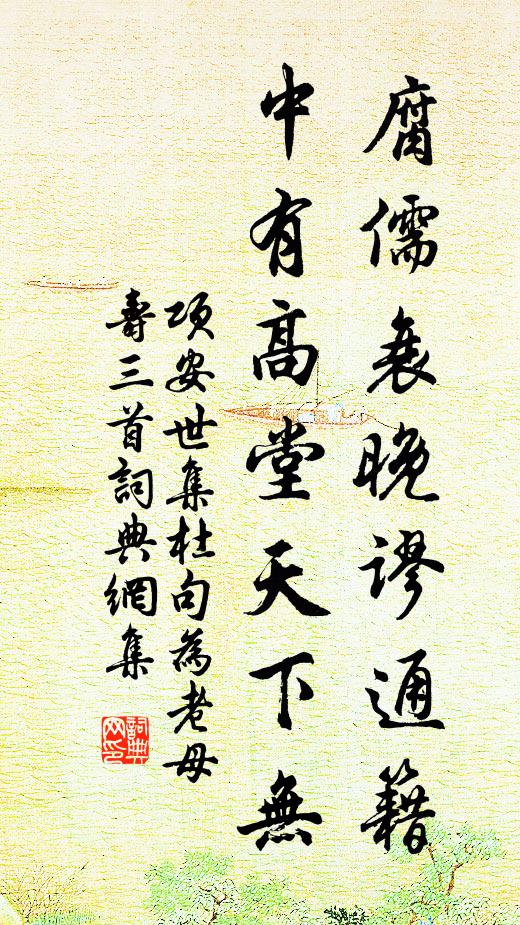 腐儒衰晚謬通籍
中有高堂天下無
項安世集杜句為老母
壽三首詞典網集
詞典
网印